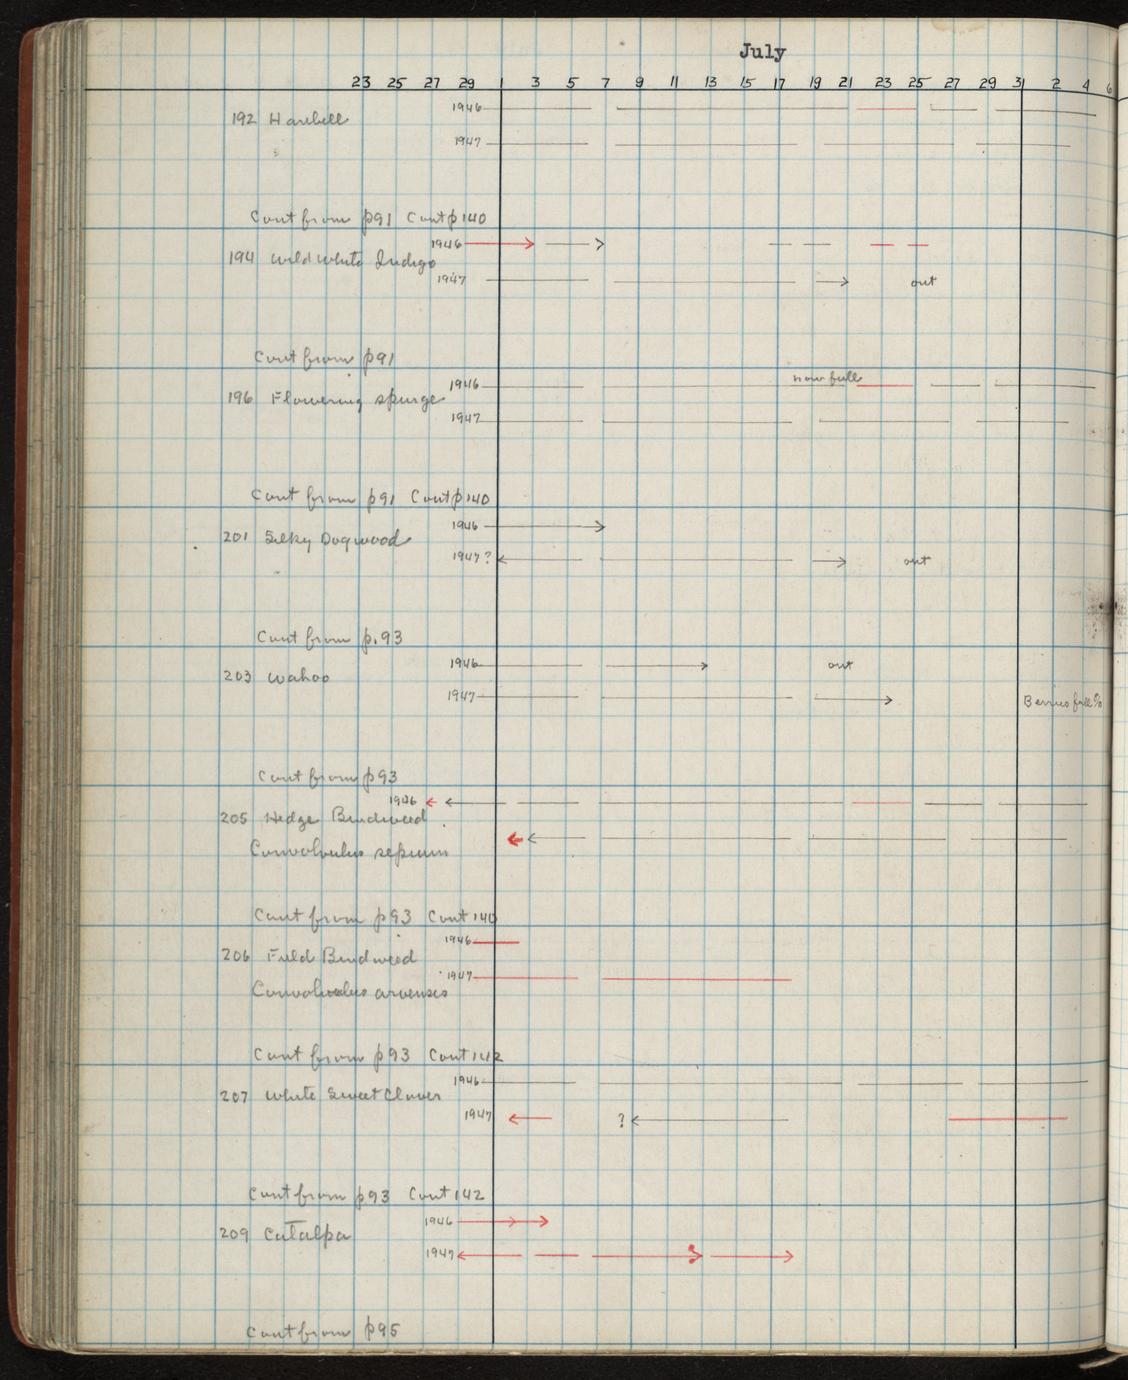 July
23 25 27 29 1 3 5 7 9 11 13 15 17 19 21 23 25 27 29 31 2 4 6
1946
192 Harebell
1947
Cont from p91 Cont p140
1946
194 Wild White Indigo
1947 out
Cont from p91
now full
1946
196 Flowering spurge
1947
Cont from p91 Cont p140
1946
201 Silky Dogwood
1947? out
Cont from p.93
1946 out
203 Wahoo
1947 Berries full
Cont from p93
1946
205 Hedge Bindweed
Convolvulus sepium
Cont from p93 Cont 140
1946
206 Field Bindweed
1947
Convolvulus arvensis
Cont from p93 Cont 142
1946
207 White Sweet Clover
1947 ?
Cont from p93 Cont 142
1946
209 Catalpa
1947
Cont from p95